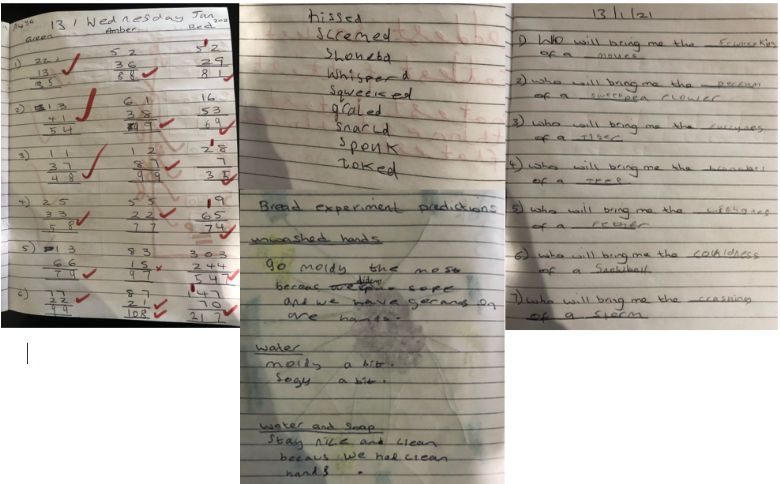 13 1 Wednesday Jan
Green Amber Red
1) 22 52 52
13 36 29
35 88 81
2) 13 61 16
41 38 53
54 99 69
3) 11 12 28
37 87 7
48 99 35
4) 25 55 19
33 22 65
58 77 74
5) 13 83 303
66 15 244
79 97 547
6) 77 87 147
22 21 70
99 108 217
hissed
Scremed
Shoneted
whisperd
Sqweeked
graled
Snarld
Spouk
Joked
Bread experiment predictions
unwashed hands
go moldy the most
becaus sope
and we have germs on
are hands.
Water
moldy a bit.
Sogy a bit.
Water and Soap
Stay nice and clean
becaus we had clean
hands.
13/1/21
1) Who will bring me the
of a mouse
2) who will bring me the
of a sweetpea flower
3) who will bring me the
of a
4) who will bring me the
of a tree
5) who will bring me the
of a
6) who will bring me the couldness
of a Snowball
7) who will bring me the crashing
of a storm